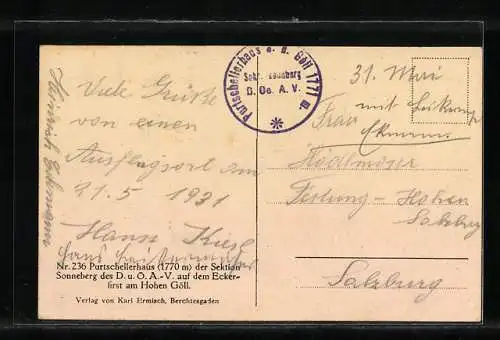 Viele Grüße
von einem
Ausflugsort am
31.5 1931
Hans
Nr. 236 Purtschellerhaus (1770 m) der Sektion
Sonneberg des D. u. O. A.-V. auf dem Ecker-
first am Hohen Göll.
Verlag von Karl Ermisch, Berchtesgaden
Heinrich
Purtschellerhaus a. H. Göll 1771 m.
Sekt. Sonneberg
D. Oe. A. V.
31. Mai
mit
Frau
Festung-Hohen
Salzbg
Salzburg